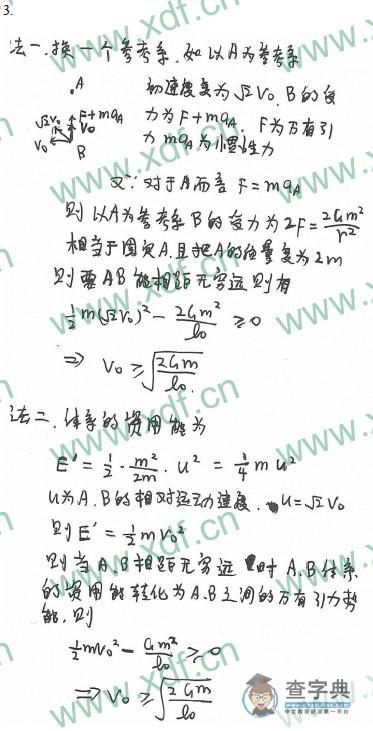 3.
法一.换一个参考系.如以A为参考系
.A 初速度变为√2V₀.B的受
√2V₀ F+ma_A 力为F+ma_A. F为万有引
V₀ V₀ 力 ma_A为惯性力
B
又∵对于A而言 F=ma_A
则以A为参考系B的受力为2F=2Gm²/r²
相当于固定A.且把A的质量变为2m
则要AB能相距无穷远则有
½m(√2V₀)²-2Gm²/l₀≥0
⇒ V₀≥√(2Gm/l₀).
法二.体系的资用能为
E'=½·m²/2m.u²=¼mu²
u为A.B的相对运动速度. u=√2V₀
则E'=½mV₀²
则当A.B相距无穷远时A.B体系
的资用能转化为A.B之间的万有引力势
能.则
½mV₀²-Gm²/l₀≥0
⇒V₀≥√(2Gm/l₀)
www.xdf.cn
www.xdf.cn
www.xdf.cn
www.xdf.cn
查字典